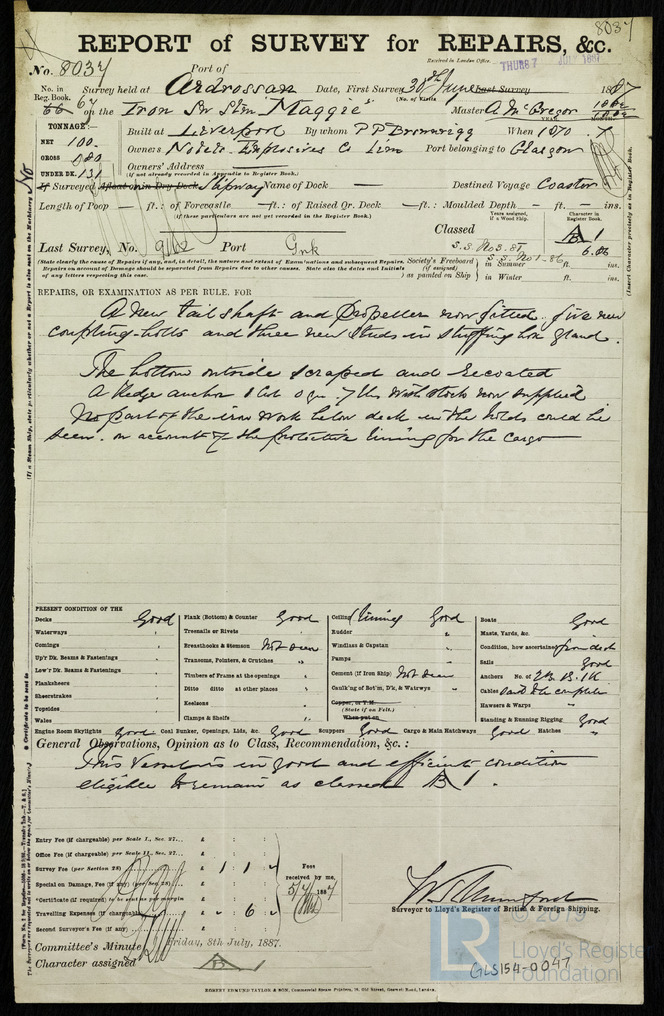 8037
REPORT of SURVEY for REPAIRS, &c.
Received in London Office.
THURS 7 JULY 1887
No. 8037 Port of
No. in Reg. Book. Survey held at Ardrossan Date, First Survey 20th June Last Survey 1887
(No. of Visits
66 67 on the Iron Sr Stm "Maggie" Master A. McGregor
TONNAGE:— Built at Liverpool By whom P P Brownrigg When 1870 7
YEAR MONTH
NET 100 Owners Nobels Explosives Co Lim Port belonging to Glasgow
GROSS
UNDER DK. 131 Owners' Address
(If not already recorded in Appendix to Register Book.)
If Surveyed Afloat or in Dry Dock Slipway Name of Dock — Destined Voyage Coaster
Length of Poop — ft.: of Forecastle — ft.: of Raised Qr. Deck — ft.: Moulded Depth — ft. — ins.
(If these particulars are not yet recorded in the Register Book.)
Years assigned, if a Wood Ship. Character in Register Book.
Classed
Last Survey, No. 9162 Port Gnk
6.86
(State clearly the cause of Repairs if any, and, in detail, the nature and extent of Examinations and subsequent Repairs.
Repairs on account of Damage should be separated from Repairs due to other causes. State also the dates and Initials
of any letters respecting this case.
Society's Freeboard (if assigned) as painted on Ship
in Summer ft. ins.
in Winter ft. ins.
(Insert Character precisely as in Register Book.
REPAIRS, OR EXAMINATION AS PER RULE, FOR
A new tail shaft and propeller now fitted. five new
coupling bolts and three new studs in stuffing box gland.
The bottom outside scraped and recoated
A Kedge anchor 1 Cwt 0 qr 7 lbs with stock now supplied
No part of the iron work below deck in the holds could be
seen on account of the protective lining for the cargo
PRESENT CONDITION OF THE
Decks Good
Waterways "
Comings "
Up'r Dk. Beams & Fastenings "
Low'r Dk. Beams & Fastenings
Planksheers
Sheerstrakes "
Topsides "
Wales "
Plank (Bottom) & Counter Good
Treenails or Rivets "
Breasthooks & Stemson Not seen
Transoms, Pointers, & Crutches "
Timbers of Frame at the openings "
Ditto ditto at other places "
Keelsons "
Clamps & Shelfs "
Ceiling lining Good
Rudder "
Windlass & Capstan "
Pumps "
Cement (if Iron Ship) Not seen
Caulk'ng of Bot'm, D'k, & Waterwys "
Copper, or Y.M.
(State if on Felt.)
When put on
Boats Good
Masts, Yards, &c. "
Condition, how ascertained from deck
Sails Good
Anchors No. of 2B. 1S. 1K
Cables said to be complete
Hawsers & Warps "
Standing & Running Rigging Good
Engine Room Skylights Good Coal Bunker, Openings, Lids, &c. Good Scuppers Good Cargo & Main Hatchways Good Hatches "
General Observations, Opinion as to Class, Recommendation, &c.:
This Vessel is in good and efficient condition
eligible to remain as classed B 1.
Entry Fee (if chargeable) per Scale I., Sec. 27... £ : :
Office Fee (if chargeable) per Scale II., Sec. 27... £ : :
Survey Fee (per Section 28) £ 1 : 1 :
Special on Damage, Fee (if any) (per Sec. 28) £ : :
*Certificate (if required) to be sent as per margin £ : :
Travelling Expenses (if chargeable) £ : 6 :
Second Surveyor's Fee (if any) £ : :
Fees
received by me,
5/7 1887
Surveyor to Lloyd's Register of British & Foreign Shipping.
Committee's Minute Friday, 8th July, 1887.
Character assigned
ROBERT EDMUND TAYLOR & SON, Commercial Steam Printers, 19, Old Street, Goswell Road, London.
© 2019
LR
Lloyd's Register
Foundation
GLS154-0047